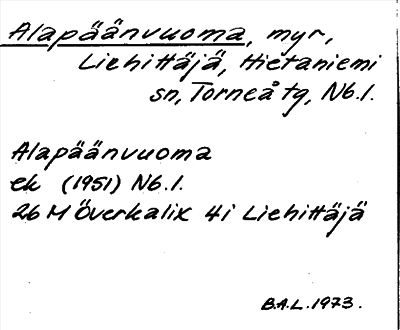 Alapäänvuoma, myr,
Liehittäjä, Hietaniemi
sn, Torneå tg, Nb.l.
Alapäänvuoma
ek (1951) Nb.l.
26 M Överkalix 4i Liehittäjä
B.A.L. 1973.